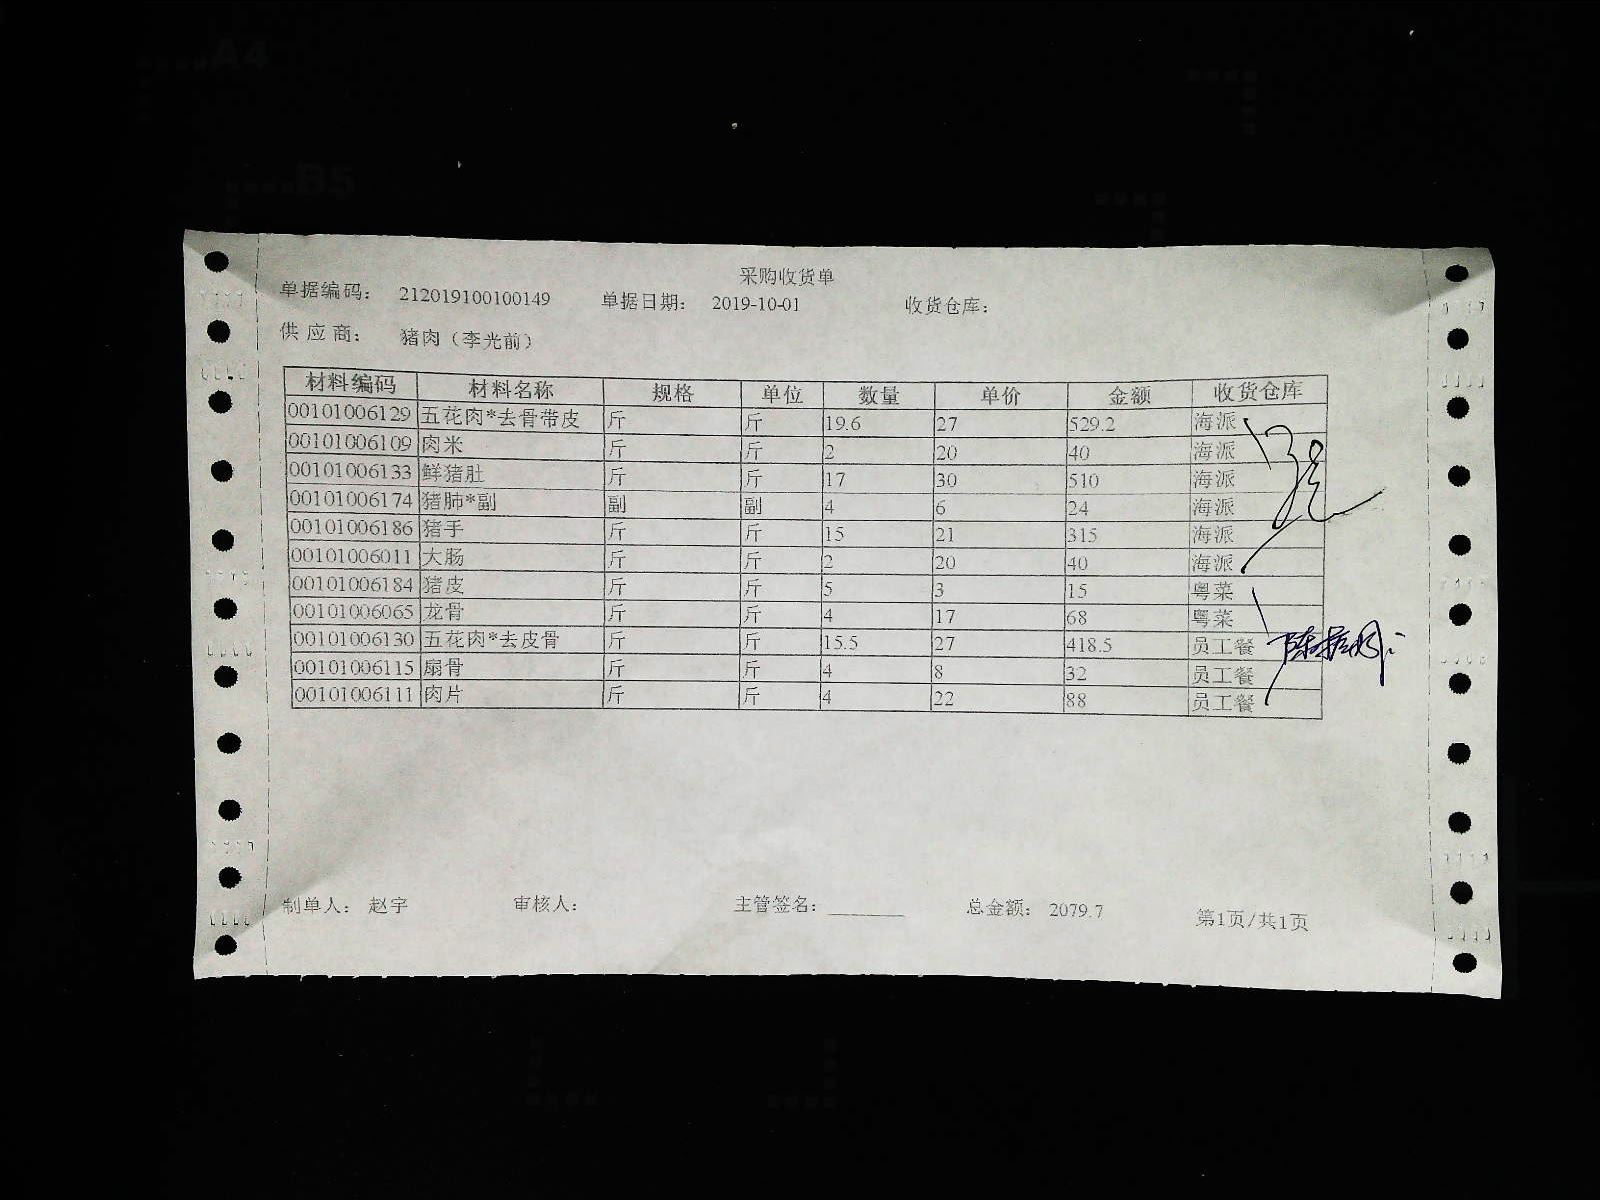 采购收货单
单据编码： 212019100100149 单据日期： 2019-10-01 收货仓库：
供 应 商： 猪肉（李光前）
材料编码 材料名称 规格 单位 数量 单价 金额 收货仓库
00101006129 五花肉*去骨带皮 斤 斤 19.6 27 529.2 海派
00101006109 肉米 斤 斤 2 20 40 海派
00101006133 鲜猪肚 斤 斤 17 30 510 海派
00101006174 猪肺*副 副 副 4 6 24 海派
00101006186 猪手 斤 斤 15 21 315 海派
00101006011 大肠 斤 斤 2 20 40 海派
00101006184 猪皮 斤 斤 5 3 15 粤菜
00101006065 龙骨 斤 斤 4 17 68 粤菜
00101006130 五花肉*去皮骨 斤 斤 15.5 27 418.5 员工餐
00101006115 扇骨 斤 斤 4 8 32 员工餐
00101006111 肉片 斤 斤 4 22 88 员工餐
制单人： 赵宇 审核人： 主管签名： 总金额： 2079.7 第1页/共1页